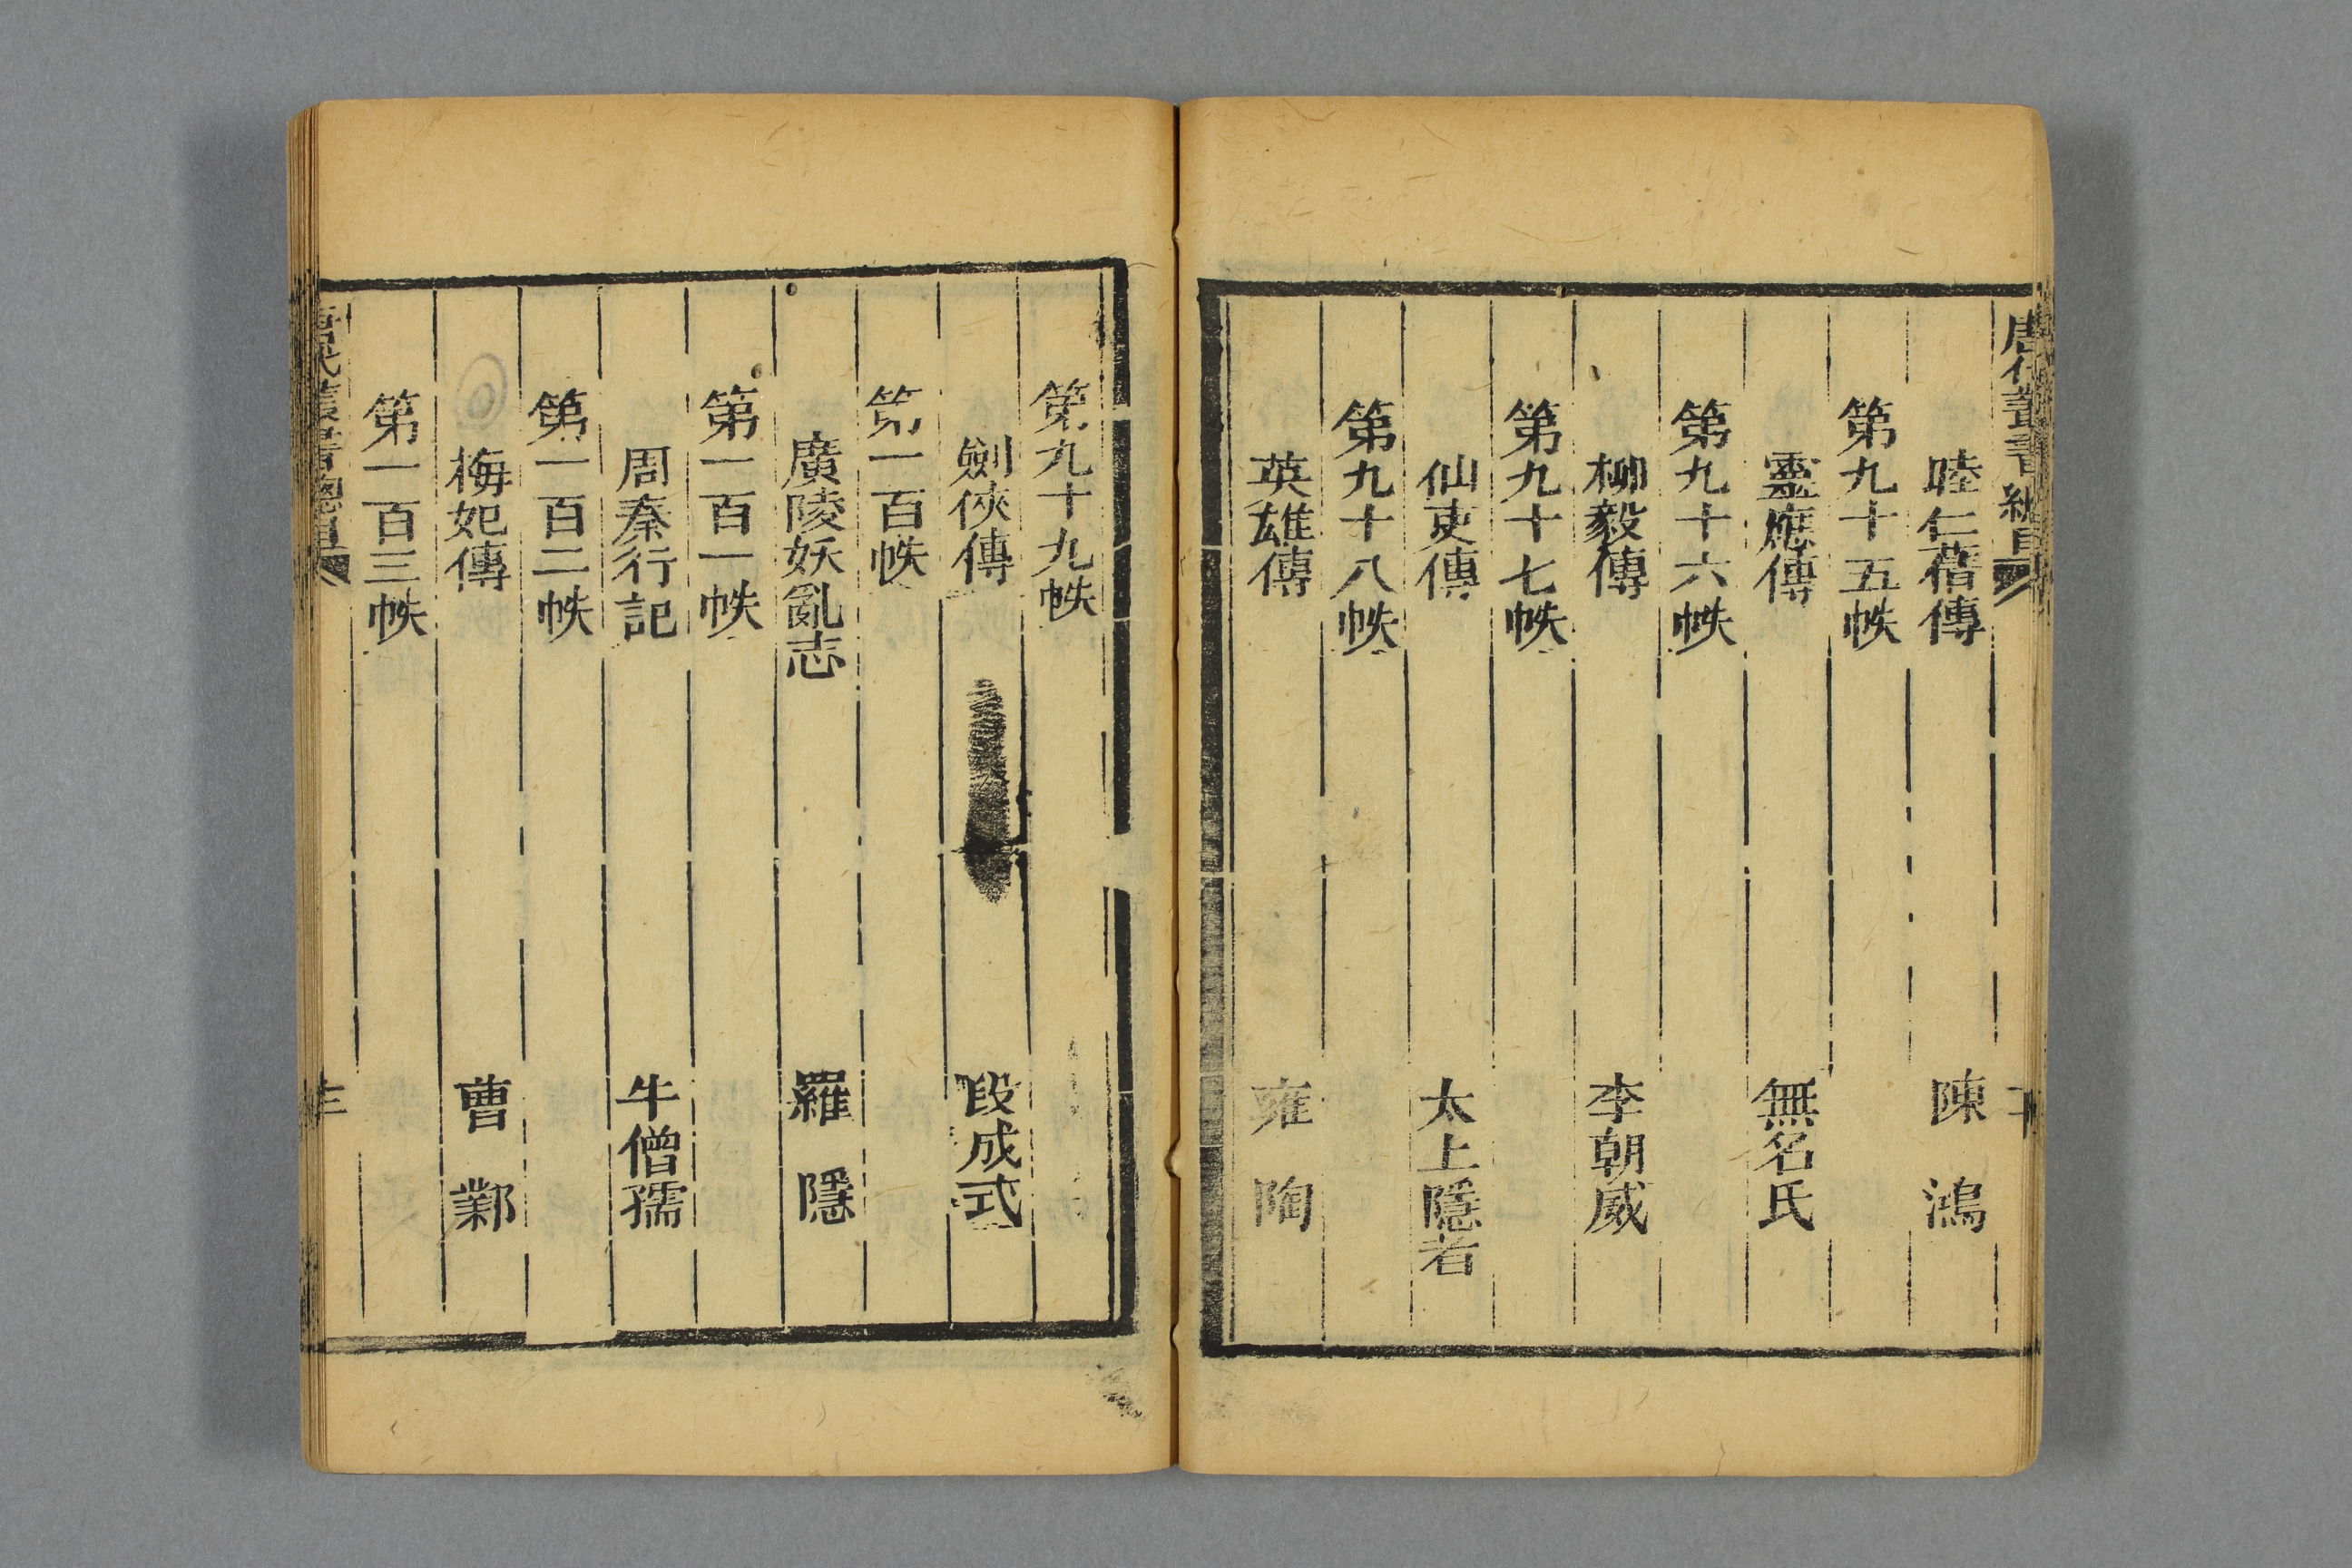 唐代叢書總目
睦仁蒨傳 陳鴻
第九十五帙
靈應傳 無名氏
第九十六帙
柳毅傳 李朝威
第九十七帙
仙吏傳 太上隱者
第九十八帙
英雄傳 雍陶
第九十九帙
劍俠傳 段成式
第一百帙
廣陵妖亂志 羅隱
第一百一帙
周秦行記 牛僧孺
第一百二帙
梅妃傳 曹鄴
第一百三帙
唐代叢書總目